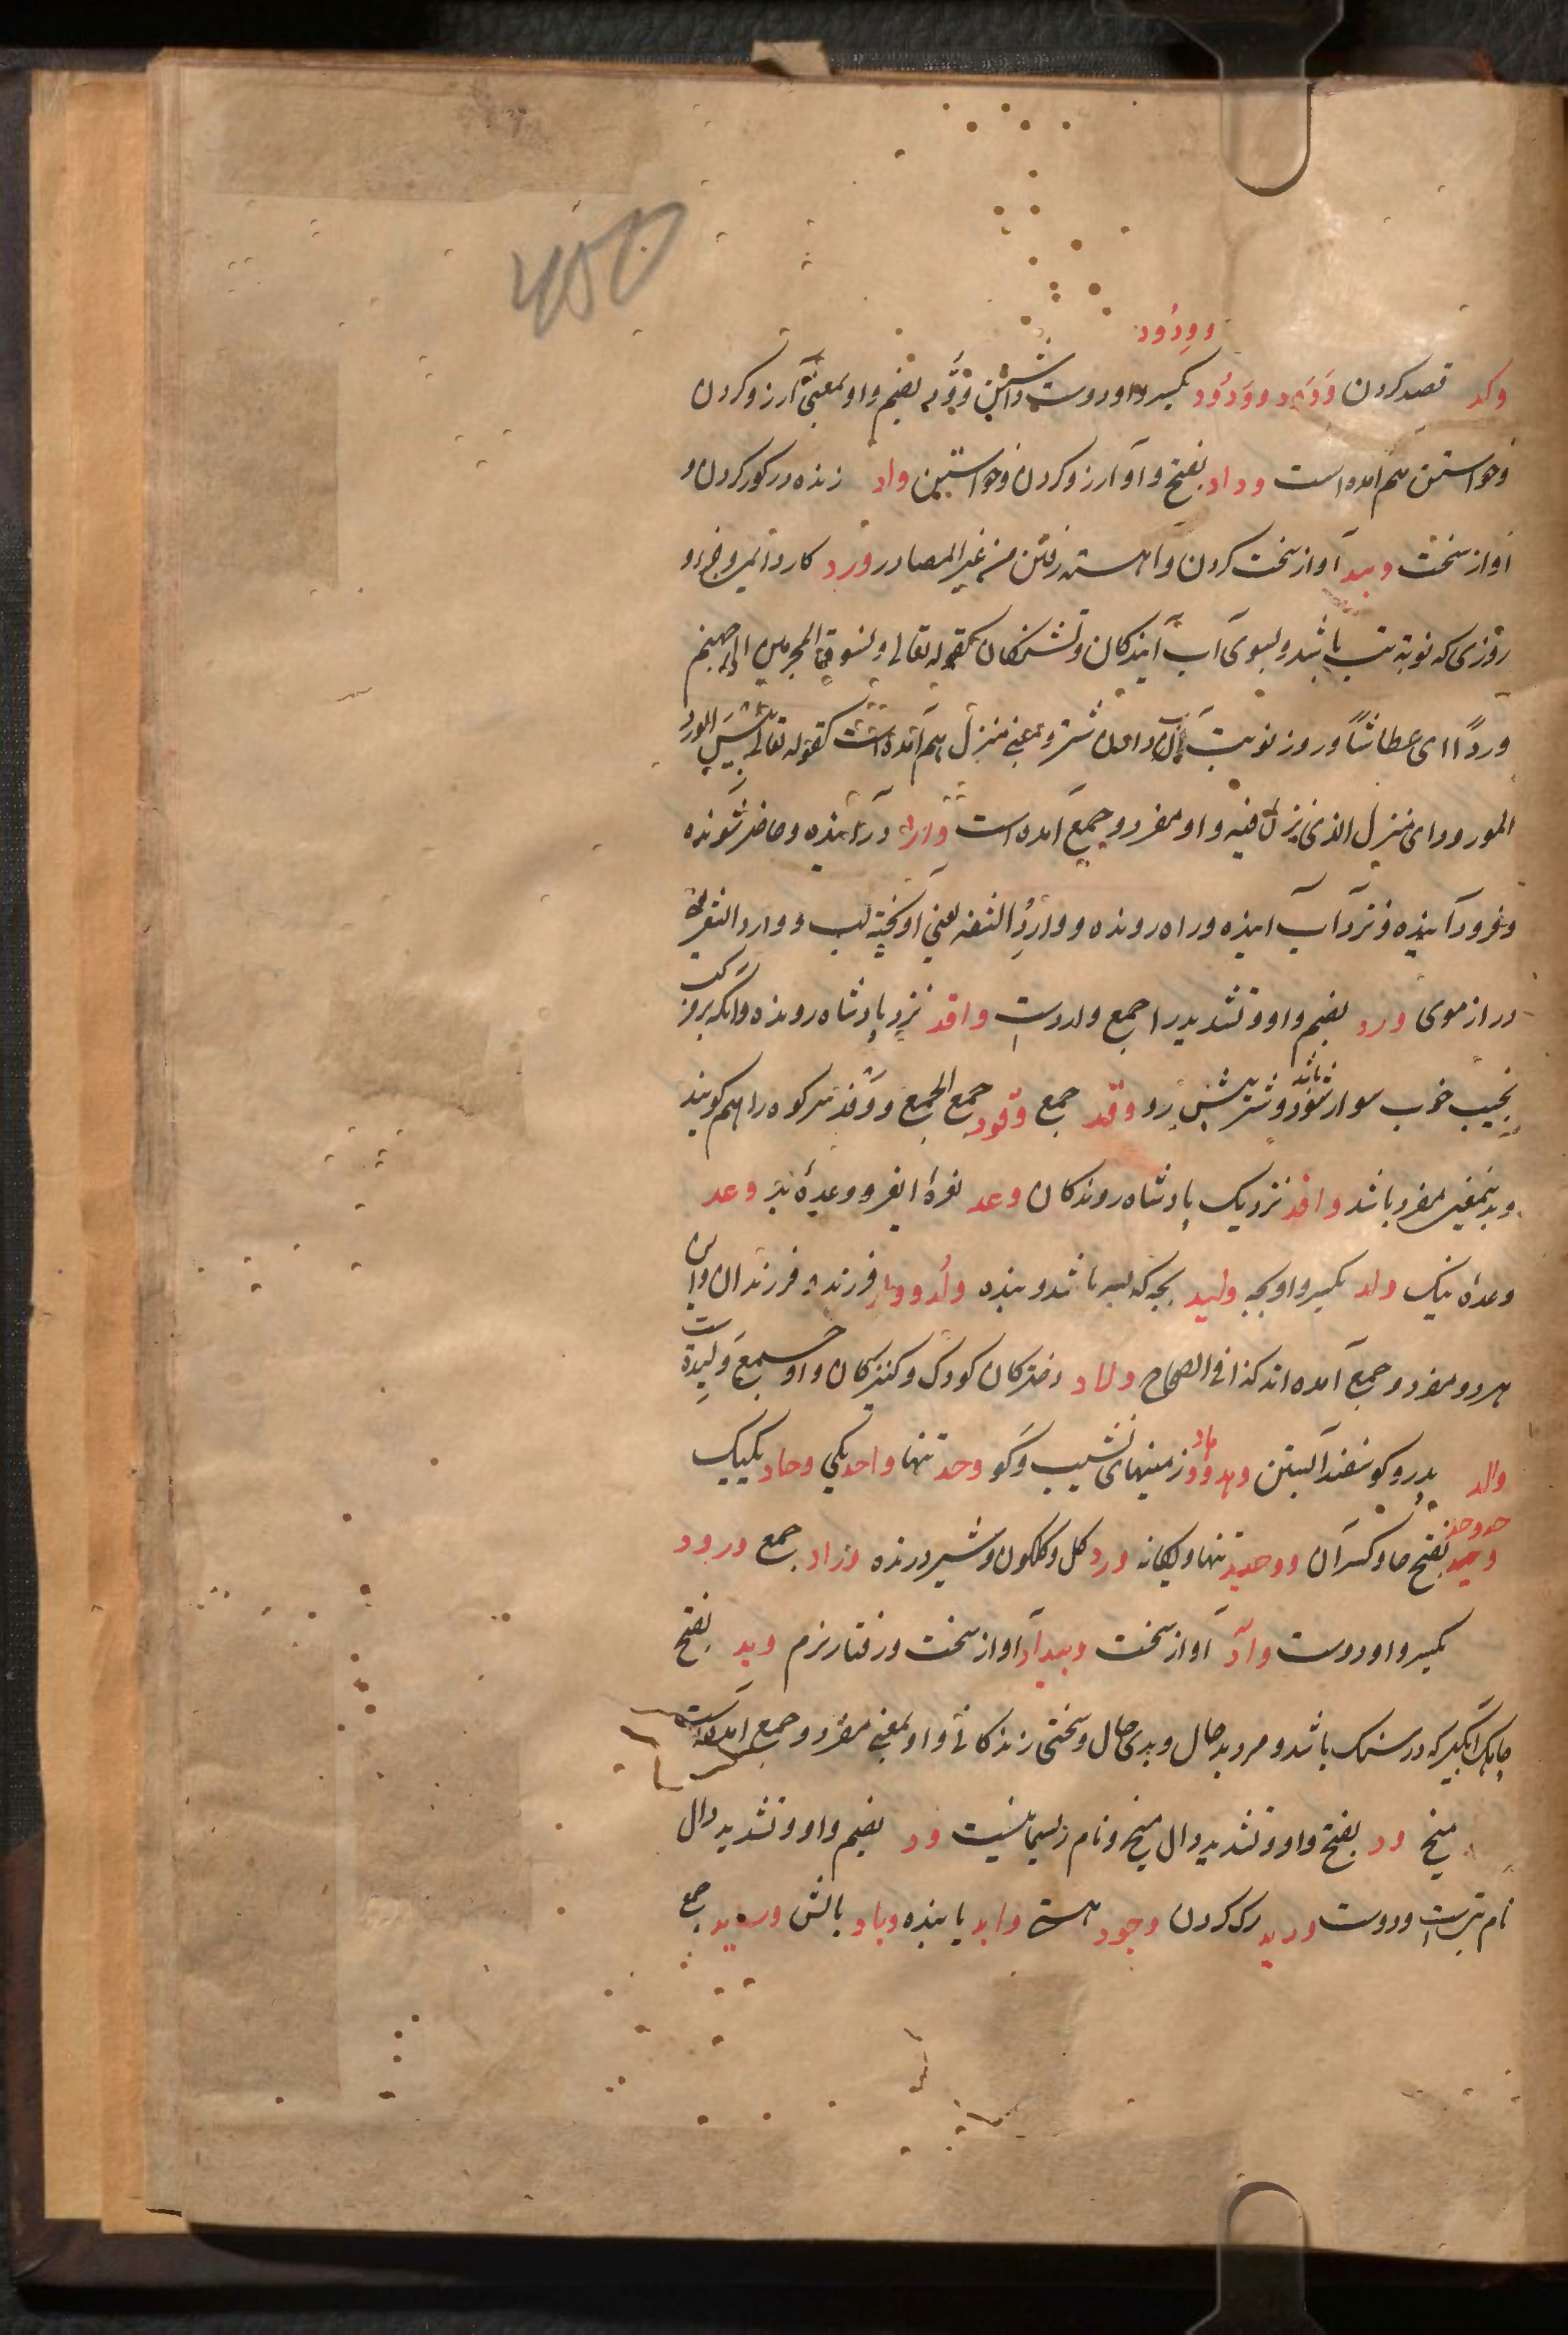 450
وودود
وکد قصد کردن ودد و ودود بکسر واو دوست داشتن وود بضم واو بمعنی آرزو کردن
وخواستن هم آمده است وداد بفتح واو آرزو کردن وخواستن واد زنده در کور کردن و
آواز سخت وئید آواز سخت کردن وآهسته رفتن من غیر المصادر ورد
روزی که نوبه تب باشد وبسوی آب آیندکان وتشنکان کقوله تعالی ونسوق المجرمین الی جهنم
وردًا ای عطاشًا وروز نوبت آب دادن شتر وبمعنی منزل هم آمده است کقوله تعالی بئس الورد
المورود ای منزل الذی نزل فیه واو مفرد وجمع آمده است وارد درآینده وحاضر شونده
وفرود آینده ونزد آب آینده وراه رونده ووارد الشفه یعنی آویخته لب ووارد الشعر
دراز موی ورد بضم واو وتشدید را جمع واردست وافد نزد پادشاه رونده وآنکه بروز
نجیب خوب سوار شود وشتر پیش رو وفد جمع وفود جمع الجمع ووفد سر کوه را هم کویند
وبدینمعنی مفرد باشد وافد نزدیک پادشاه روندکان وعد نعرهٔ ووعدهٔ بد وعد
وعدهٔ نیک ولد بکسر واو بچه ولید بچه که پسر باشد وبنده ولد وولد فرزند وفرزندان واین
هر دو مفرد وجمع آمده اند کذا فی الصحاح ولاد دخترکان کودک وکنیزکان واو جمع ولیدة است
والد پدر وکوسفند آبستن وهد وهاد زمینهای نشیب وکو وحد تنها واحد یکی وحاد یکیک
وحد وحد بفتح حا وکسر آن ووحید تنها ویکانه ورد کل وکلکون وشیر درنده وراد جمع ورود
بکسر واو دوست وآد آواز سخت وئید آواز سخت ورفتار نرم وبد بفتح
آبکیر که در سنک باشد ومرد بد حال وبدی حال وسختی زندکانی واو بمعنی مفرد وجمع آمده است
میخ ود بفتح واو وتشدید دال میخ ونام ود بضم واو وتشدید دال
نام بتیست ودوست ورید رک کردن وجود هستی واجد یابنده وساد بالش وسید جمع